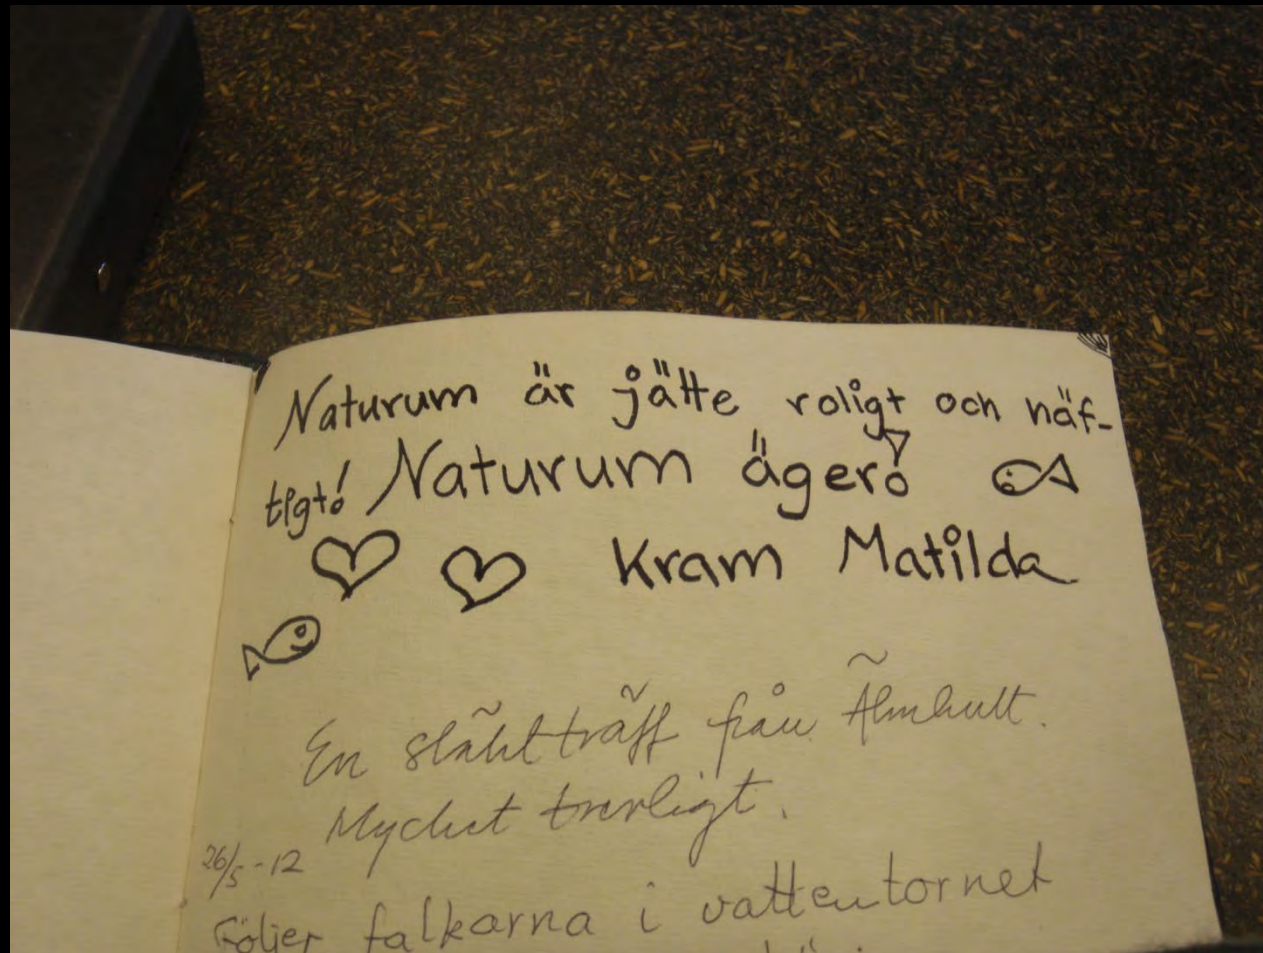 Naturum är jätte roligt och näf-
tigt! Naturum äger!
Kram Matilda
En släktträff från Älmhult.
Mycket trevligt.
26/5-12
Följer falkarna i vattentornet